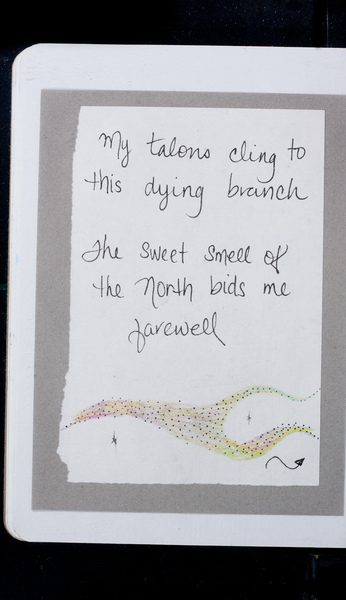 my talons cling to
this dying branch
The sweet smell of
the North bids me
farewell